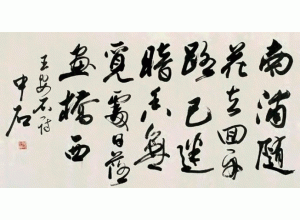 南浦随
花去回舟
路已迷
暗香無
覓處日落
畫橋西
王安石詩
中石